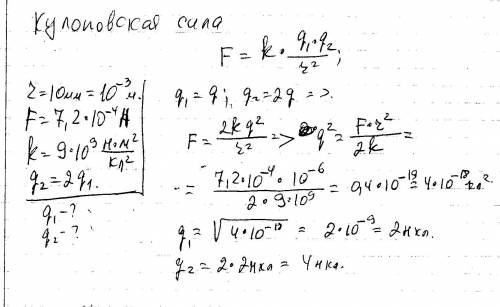 Кулоновская сила
F = k · q₁·q₂ / r² ;
r = 10 мм = 10⁻³ м.
F = 7,2·10⁻⁴ Н
k = 9·10⁹ Н·м² / Кл²
q₂ = 2q₁.
q₁ - ?
q₂ - ?
q₁ = q ; q₂ = 2q =>.
F = 2kq² / r² => q² = F·r² / 2k =
= 7,2·10⁻⁴ · 10⁻⁶ / 2·9·10⁹ = 0,4·10⁻¹⁹ = 4·10⁻¹⁸ Кл².
q₁ = √4·10⁻¹⁸ = 2·10⁻⁹ = 2нкл.
q₂ = 2·2нкл = 4нкл.